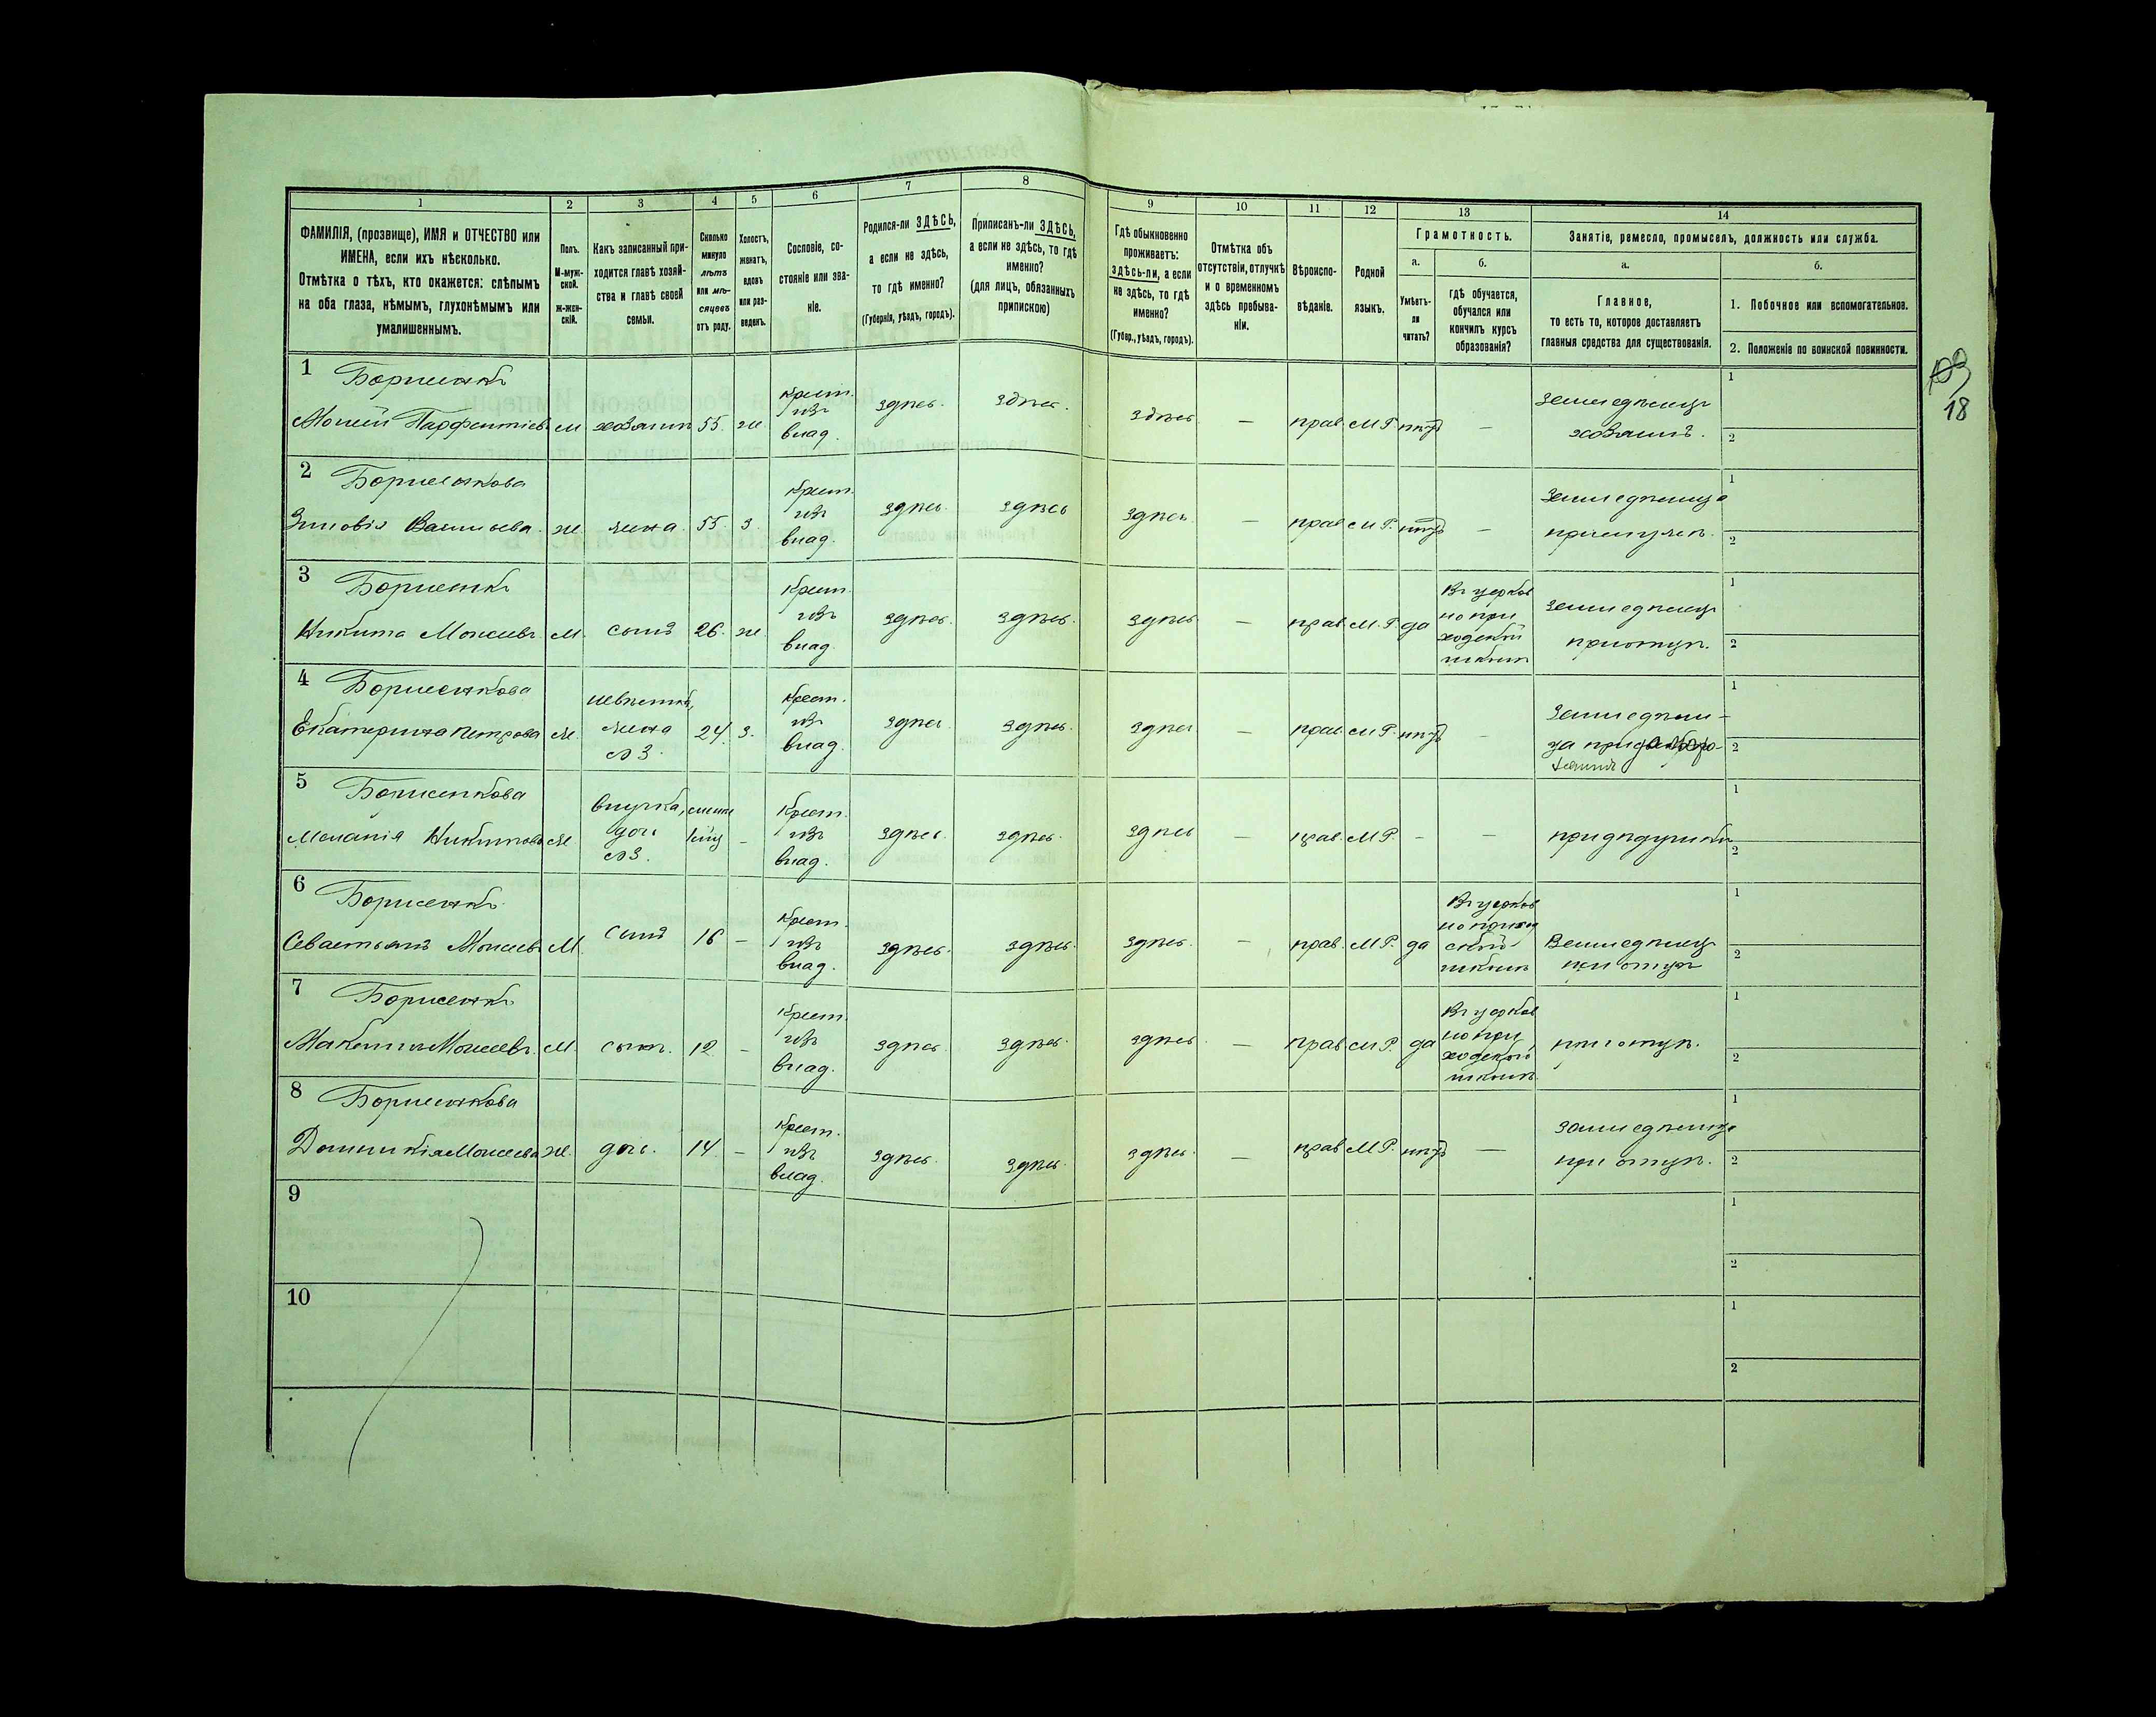 1
2
3
4
5
6
7
8
9
10
11
12
13
14
ФАМИЛІЯ, (прозвище), ИМЯ и ОТЧЕСТВО или
ИМЕНА, если ихъ нѣсколько.
Отмѣтка о тѣхъ, кто окажется: слѣпымъ
на оба глаза, нѣмымъ, глухонѣмымъ или
умалишеннымъ.
Полъ.
М-муж-
ской.
Ж-жен-
скій.
Какъ записанный при-
ходится главѣ хозяй-
ства и главѣ своей
семьи.
Сколько
минуло
лѣтъ
или мѣ-
сяцевъ
отъ роду.
Холостъ,
женатъ,
вдовъ
или раз-
веденъ.
Сословіе, со-
стояніе или зва-
ніе.
Родился-ли ЗДѢСЬ,
а если не здѣсь,
то гдѣ именно?
(Губернія, уѣздъ, городъ).
Приписанъ-ли ЗДѢСЬ,
а если не здѣсь, то гдѣ
именно?
(для лицъ, обязанныхъ
припискою)
Гдѣ обыкновенно
проживаетъ:
здѣсь-ли, а если
не здѣсь, то гдѣ
именно?
(Губер., уѣздъ, городъ).
Отмѣтка объ
отсутствіи, отлучкѣ
и о временномъ
здѣсь пребыва-
ніи.
Вѣроиспо-
вѣданіе.
Родной
языкъ.
Грамотность.
а.
Умѣетъ-
ли
читать?
б.
гдѣ обучается,
обучался или
кончилъ курсъ
образованія?
Занятіе, ремесло, промыселъ, должность или служба.
а.
Главное,
то есть то, которое доставляетъ
главныя средства для существованія.
б.
1. Побочное или вспомогательное.
2. Положеніе по воинской повинности.
18
1 Борисенкъ
Моисей Парфентіевъ м хозяинъ 55. ж. крест. изъ влад. здѣсь. здѣсь. здѣсь — прав. М Р. нѣтъ — земледѣлецъ хозяинъ. 1 2
2 Борисенкова
Зиновія Васильева. ж. жена. 55. з. крест. изъ влад. здѣсь. здѣсь здѣсь — прав. М Р. нѣтъ — земледѣлица 1 2
3 Борисенкъ
Никита Моисеевъ м. сынъ 26. ж. крест. изъ влад. здѣсь. здѣсь. здѣсь — прав. М. Р. да Въ церков но при ходской школѣ земледѣлецъ 1 2
4 Борисенкова
Екатерина Петрова ж. невѣстка, жена №3. 24. з. крест. изъ влад. здѣсь. здѣсь. здѣсь — прав. М Р. нѣтъ — 1 2
5 Борисенкова
Меланія Никитова ж. внучка, дочь №3. — крест. изъ влад. здѣсь. здѣсь. здѣсь — прав. М Р. — — при дѣдушкѣ 1 2
6 Борисенкъ
Севастьянъ Моисеевъ М. сынъ 16 — крест. изъ влад. здѣсь. здѣсь. здѣсь. — прав. М Р. да Въ церков но приход ской школѣ земледѣлец 1 2
7 Борисенкъ
Моисеевъ. М. сынъ. 12 — крест. изъ влад. здѣсь. здѣсь. здѣсь. — прав. М Р. да Въ церков но при ходской школѣ 1 2
8 Борисенкова
Домникія Моисеева ж. дочь. 14. — крест. изъ влад. здѣсь. здѣсь. здѣсь. — прав. М Р. нѣтъ — земледѣлица 1 2
9 1 2
10 1 2